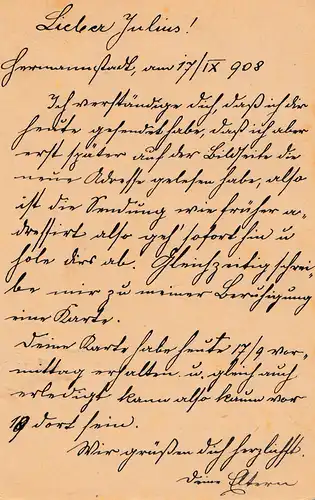 Lieber Julius!
Hermannstadt, am 17/IX 908
Ich verständige dich, daß ich dir
heute gesendet habe, daß ich aber
erst später auf der Bildseite die
neue Adresse gelesen habe, also
ist die Sendung wie früher a-
dressirt also geh' sofort hin u
hole dirs ab. Gleichzeitig schrei-
be mir zu meiner Beruhigung
eine Karte.
Deine Karte habe heute 17/9 vor-
mittag erhalten u. gleich auch
erledigt kann also kaum vor
19 dort sein.
Wir grüßen dich herzlichst
Deine Eltern